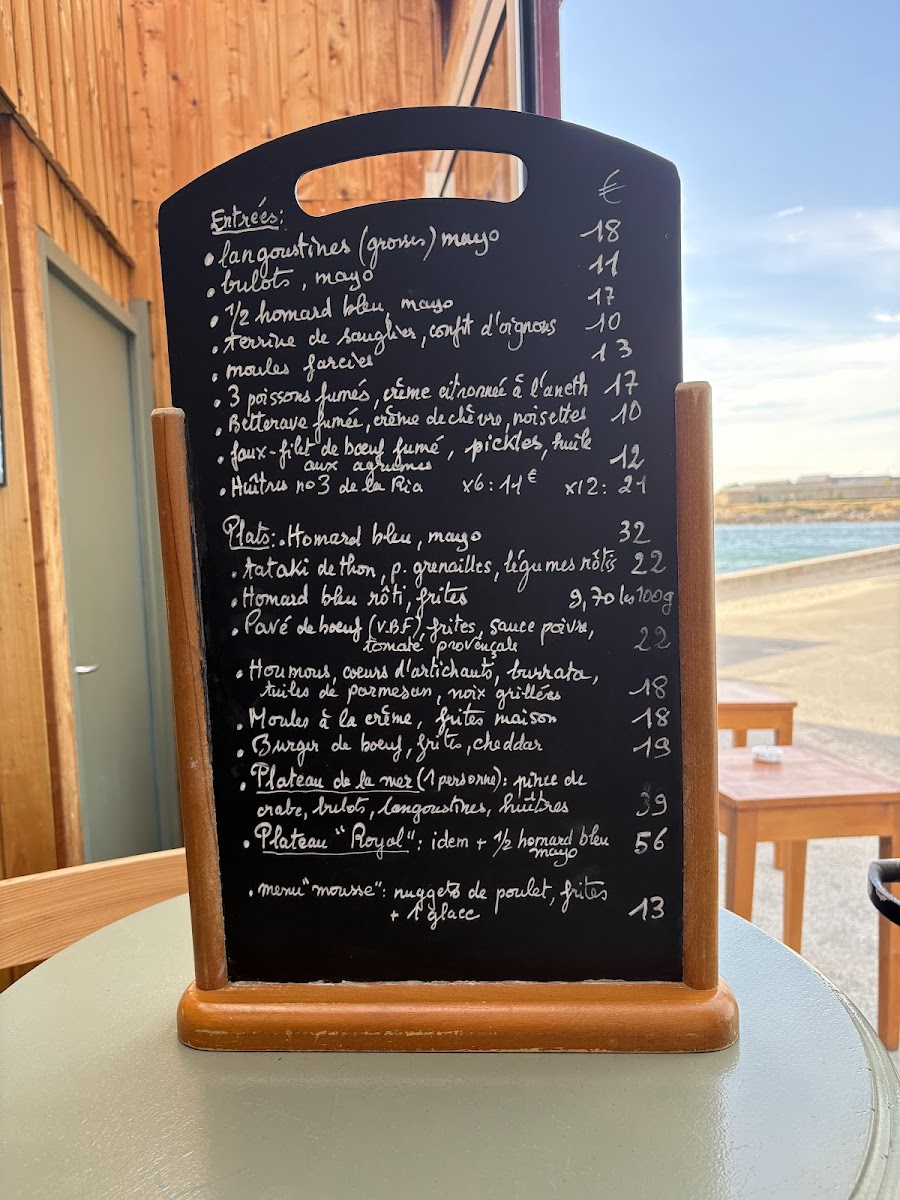 €
Entrées:
• langoustines (grosses) mayo 18
• bulots, mayo 11
• 1/2 homard bleu, mayo 17
• terrine de sanglier, confit d'oignons 10
• moules farcies 13
• 3 poissons fumés, crème citronnée à l'aneth 17
• Betterave fumée, crème de chèvre, noisettes 10
• faux-filet de bœuf fumé, pickles, huile
aux agrumes 12
• Huîtres n°3 de la Ria x6: 11€ x12: 21
Plats: • Homard bleu, mayo 32
• tataki de thon, p. grenailles, légumes rôtis 22
• Homard bleu rôti, frites 9,70 les 100g
• Pavé de boeuf (V.B.F) frites, sauce poivre,
tomate provençale 22
• Houmous, coeurs d'artichauts, burrata,
tuiles de parmesan, noix grillées 18
• Moules à la crème, frites maison 18
• Burger de boeuf, frites, cheddar 19
• Plateau de la mer (1 personne): pince de
crabe, bulots, langoustines, huîtres 39
• Plateau "Royal": idem + 1/2 homard bleu 56
mayo
• menu "mousse": nuggets de poulet, frites
+ 1 glace 13